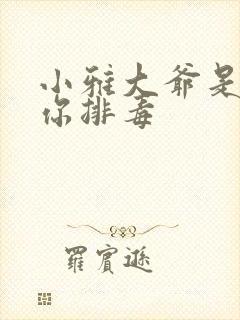 小雅大爷是
你排毒
羅賓遜